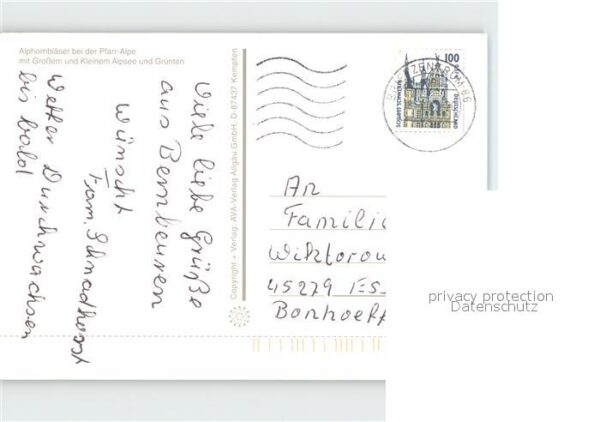 Alphornbläser bei der Pfarr-Alpe
mit Großem und Kleinem Alpsee und Grünten
Viele liebe Grüße
aus Bernbeuren
wünscht
Fam. Schnadhorst
Wetter Durchwachsen
bis bald
Copyright + Verlag: AVA-Verlag Allgäu GmbH, D-87437 Kempten
100
SCHLOSS SCHWERIN
DEUTSCHLAND
BRIEFZENTRUM 86
An
Familie
Wiktorow
45279 Es
Bonhoeff
privacy protection
Datenschutz